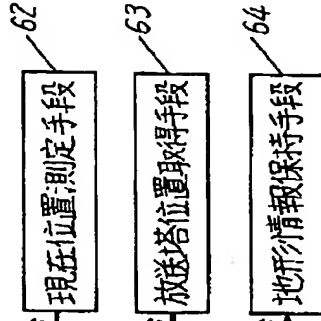 62
現在位置測定手段
63
放送塔位置取得手段
64
地形情報保持手段